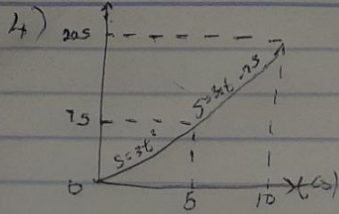 4)
225
75
S=3t²
S=30t-75
0
5
10
t(s)